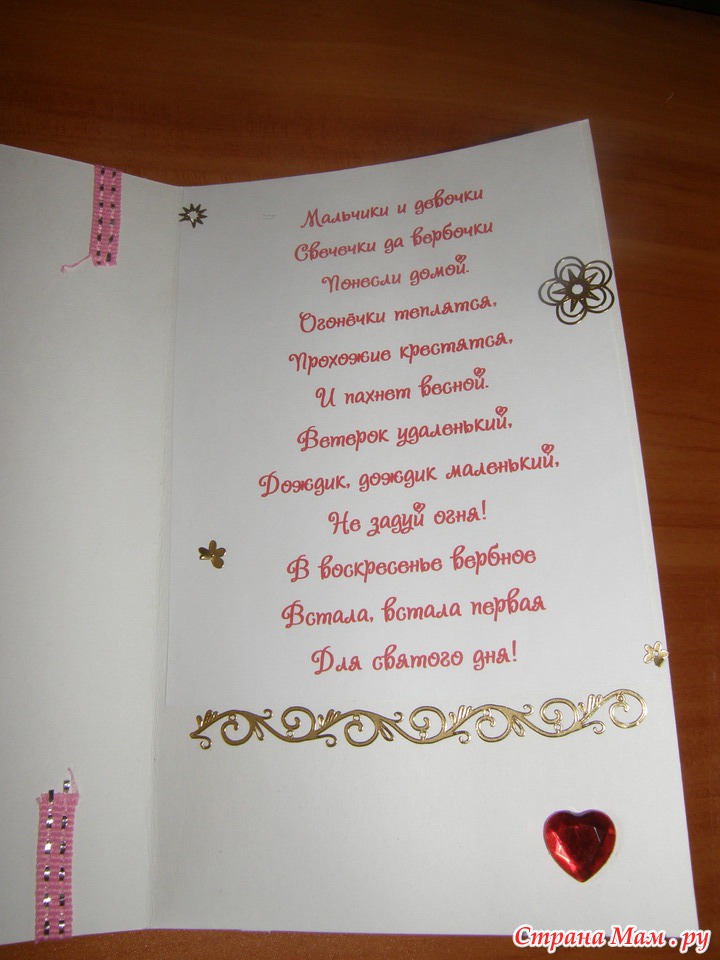 Мальчики и девочки
Свечечки да вербочки
Понесли домой.
Огонёчки теплятся,
Прохожие крестятся,
И пахнет весной.
Ветерок удаленький,
Дождик, дождик маленький,
Не задуй огня!
В воскресенье вербное
Встала, встала первая
Для святого дня!
Страна Мам.ру